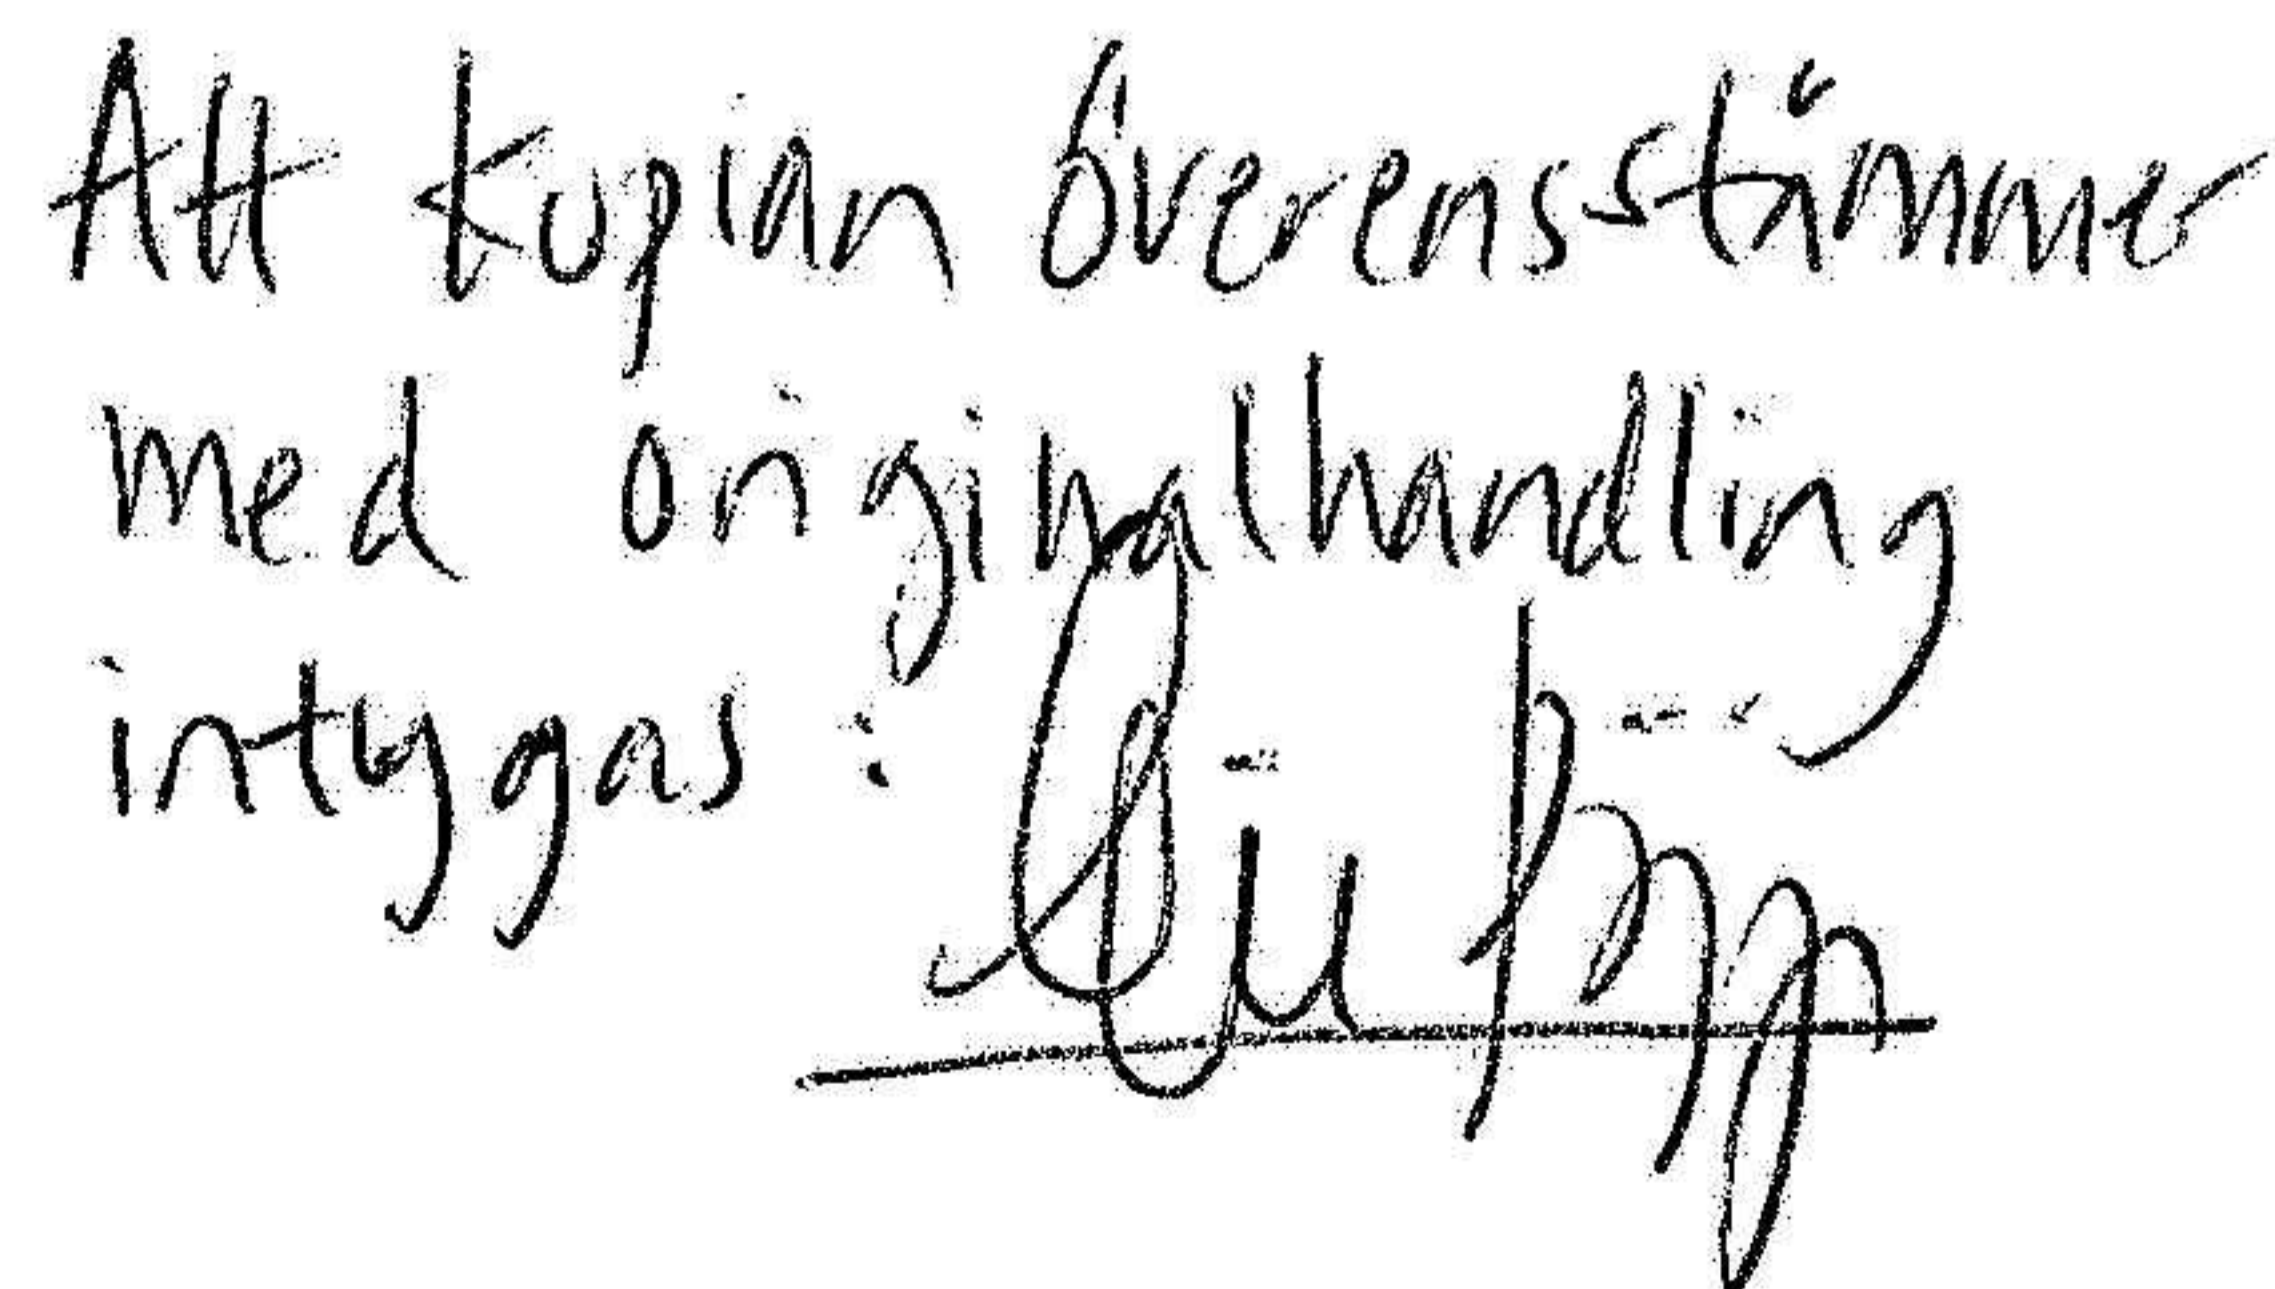 Att kopian överensstämmer
med originalhandling
intygas: